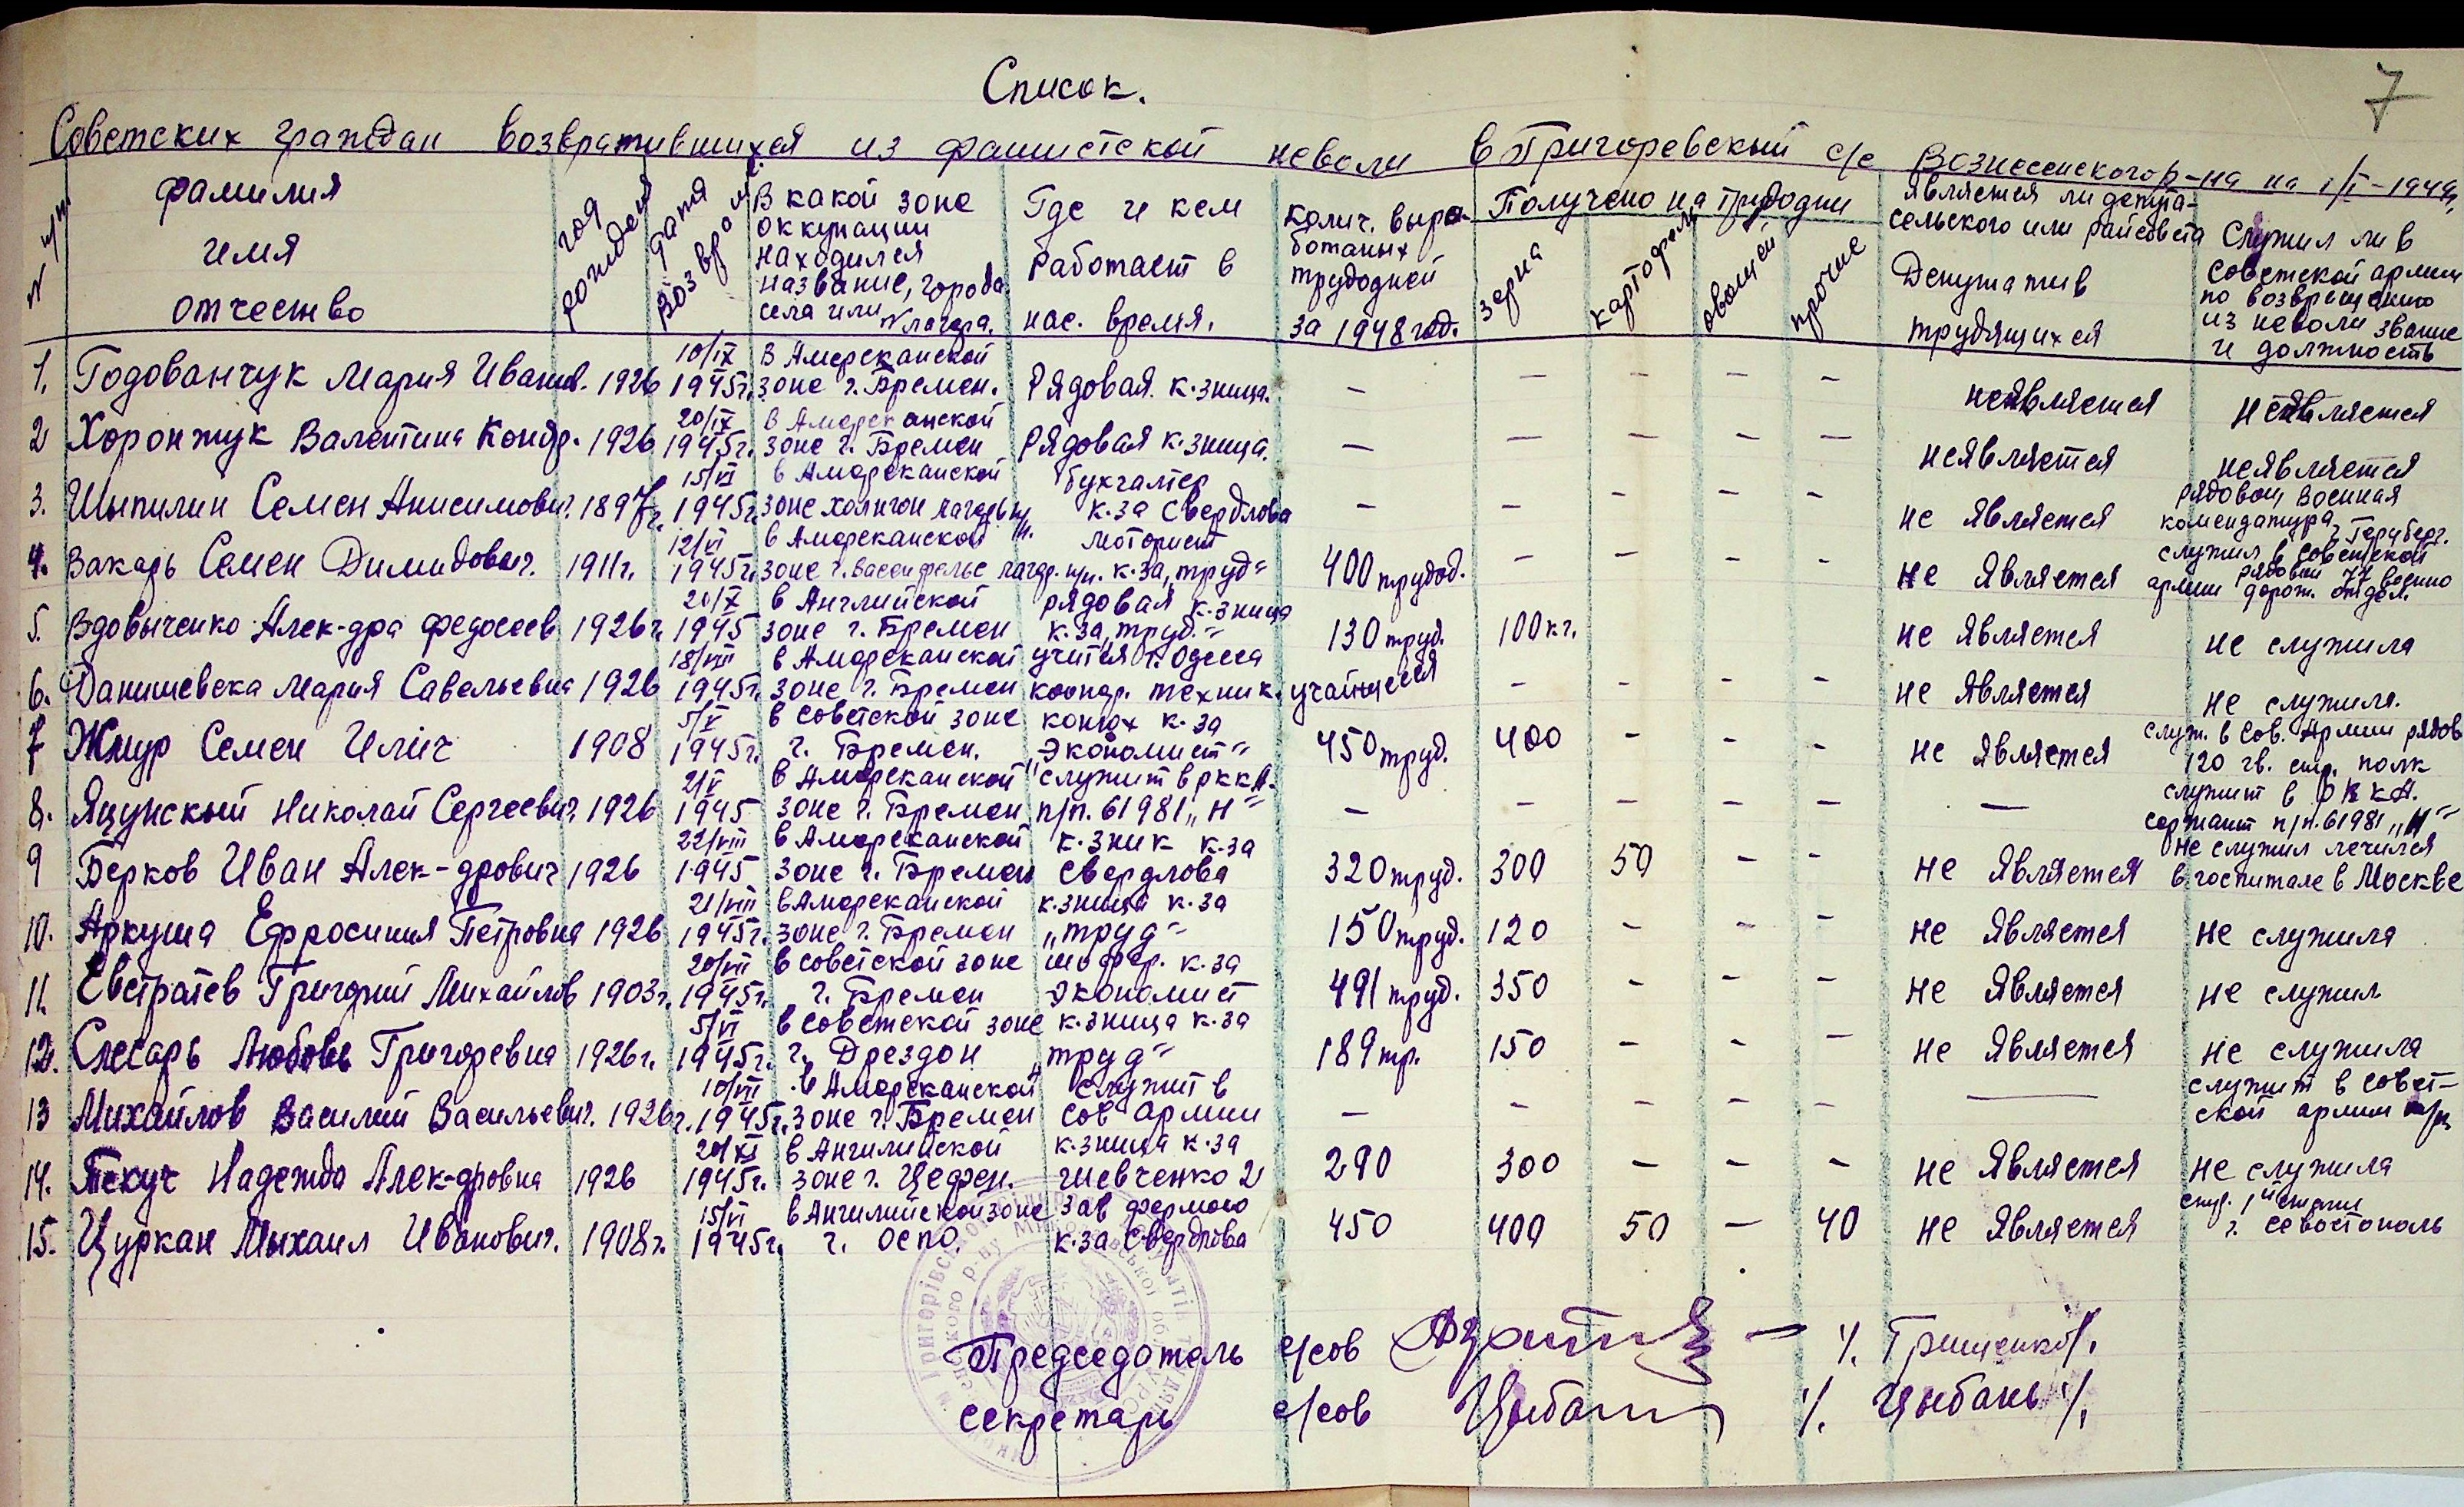 7
Список.
Советских граждан возвратившихся из фашистской неволи в Григоревский с/с Вознесенского р-на на 1/I-1949г.
N п/п
фамилия
имя
отчество
год рождения
дата возвром.
В какой зоне
оккупации
находился
название, города
села или N лагера.
Где и кем
работает в
нас. время.
колич. выра-
ботаных
трудодней
за 1948 год.
Получено на трудодни
зерна
картофель
овощей
прочие
является ли депута-
сельского или райсовета
Депутатив
трудящихся
Служил ли в
советской армии
по возвращению
из неволи звание
и должность
1. Годованчук Мария Иванов. 1926 10/IX 1945г. В Амереканской зоне г. Бремен. Рядовая. к.зница. — — — — — неявляется неявляется
2 Хоронжук Валентина Кондр. 1926 20/IX 1945г. в Амереканской зоне г. Бремен Рядовая к.зница. — — — — — неявляется неявляется
3. Шыпилин Семен Анисимович. 1897г. 15/VI 1945г. в Амереканской зоне халигон лагерь н/н. бухгалтер к.за Свердлова — — — — — не является рядовой военная комендатура г. Герцберг.
4. Вакарь Семен Димидович. 1911г. 12/VI 1945г. в Амереканской зоне г. Васенфельс лагер. н/н. моторист к.за „труд" 400 трудод. — — — — не является служил в советской армии рядовой 77 военно дорож. отдел.
5. Вдовыченко Алек-дра федосеев 1926г. 20/X 1945 в Английской зоне г. Бремен рядовая к.зница к.за „труд." 130 труд. 100 кг. не является не служила
6. Данишевска Мария Савельевна 1926 18/VIII 1945г. в Амереканской зоне г. Бремен учится г. Одесса коопер. техник. учайщееся — — — — не является не служила.
7 Жмур Семен Иліч 1908 5/V 1945г. в советской зоне г. Бремен. конюх к.за „Экономист" 450 труд. 400 — — — не является служ. в Сов. Армии рядов 120 гв. стр. полк
8. Яцунский Николай Сергеевич 1926 2/V 1945 в Амереканской зоне г. Бремен служит в РККА. п/п. 61981 „Н" — — — — — — служит в РККА. сержант п/п. 61981 „Н"
9 Берков Иван Алек-дрович 1926 22/VIII 1945 в Амереканской зоне г. Бремен к.зник к.за Свердлова 320 труд. 300 50 — — не является не служил лечился в госпитале в Москве
10. Аркуша Ефросиния Петровна 1926 21/VIII 1945г. в Амереканской зоне г. Бремен к.зница к.за „труд" 150 труд. 120 — — — не является не служила
11. Евстратев Григорий Михайлов 1903г. 20/VII 1945г. в советской зоне г. Бремен шофер. к.за Экономист 491 труд. 350 — — — не является не служил
12. Слесарь Любовь Григоревна 1926г. 5/VI 1945г. в советской зоне г. Дрездон к.зница к.за „труд" 189 тр. 150 — — — не является не служила
13 Михайлов Василий Васильевич. 1926г. 10/VII 1945г. в Амереканской зоне г. Бремен служит в сов армии — — — — — — служит в совет- ской армии
14. Пекуч Надежда Алек-дровна 1926 20/XI 1945г. в Английской зоне г. Цефен. к.зница к.за Шевченко 2 290 300 — — — не является не служила
15. Цуркан Мыхаил Иванович. 1908г. 15/VI 1945г. в Английской зоне г. Оспо. Зав фермою к.за Свердлова 450 400 50 — 40 не является г. Севостополь
Председатель с/сов /. Грищенко/.
Секретарь с/сов Цыбань /. Цыбань/.